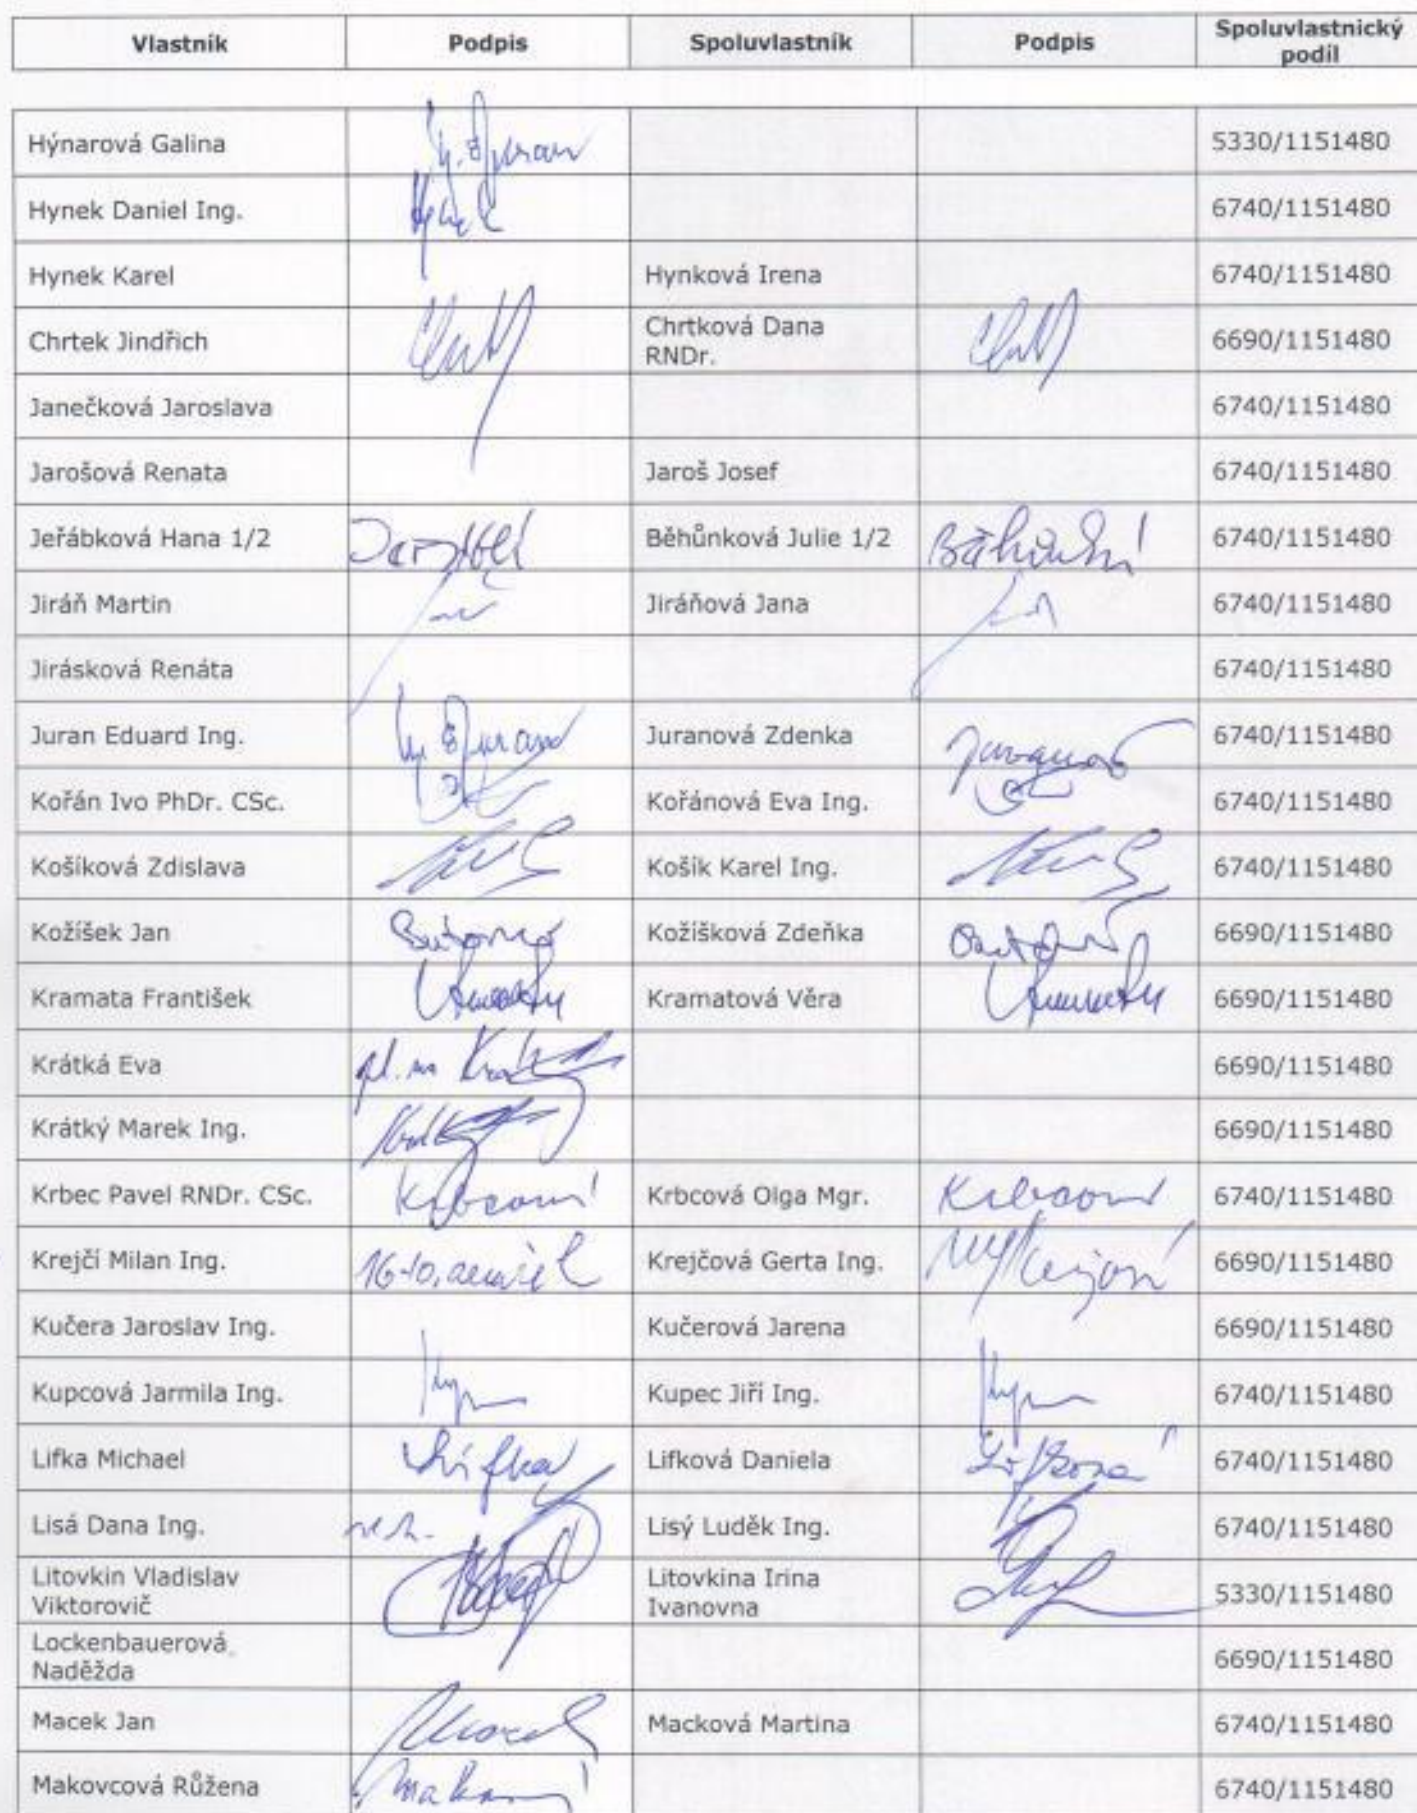 Vlastník Podpis Spoluvlastník Podpis Spoluvlastnický
podíl
Hýnarová Galina 5330/1151480
Hynek Daniel Ing. Hynek 6740/1151480
Hynek Karel Hynková Irena 6740/1151480
Chrtek Jindřich Chrtková Dana
RNDr. 6690/1151480
Janečková Jaroslava 6740/1151480
Jarošová Renata Jaroš Josef 6740/1151480
Jeřábková Hana 1/2 Běhůnková Julie 1/2 6740/1151480
Jiráň Martin Jiráňová Jana 6740/1151480
Jirásková Renáta 6740/1151480
Juran Eduard Ing. Juranová Zdenka 6740/1151480
Kořán Ivo PhDr. CSc. Kořánová Eva Ing. 6740/1151480
Košíková Zdislava Košík Karel Ing. 6740/1151480
Kožíšek Jan Kožíšková Zdeňka 6690/1151480
Kramata František Kramatová Věra 6690/1151480
Krátká Eva 6690/1151480
Krátký Marek Ing. 6690/1151480
Krbec Pavel RNDr. CSc. Krbcová Olga Mgr. 6740/1151480
Krejčí Milan Ing. Krejčová Gerta Ing. 6690/1151480
Kučera Jaroslav Ing. Kučerová Jarena 6690/1151480
Kupcová Jarmila Ing. Kupec Jiří Ing. 6740/1151480
Lifka Michael Lifka Lifková Daniela Lifková 6740/1151480
Lisá Dana Ing. Lisý Luděk Ing. 6740/1151480
Litovkin Vladislav
Viktorovič Litovkina Irina
Ivanovna 5330/1151480
Lockenbauerová
Naděžda 6690/1151480
Macek Jan Macková Martina 6740/1151480
Makovcová Růžena 6740/1151480